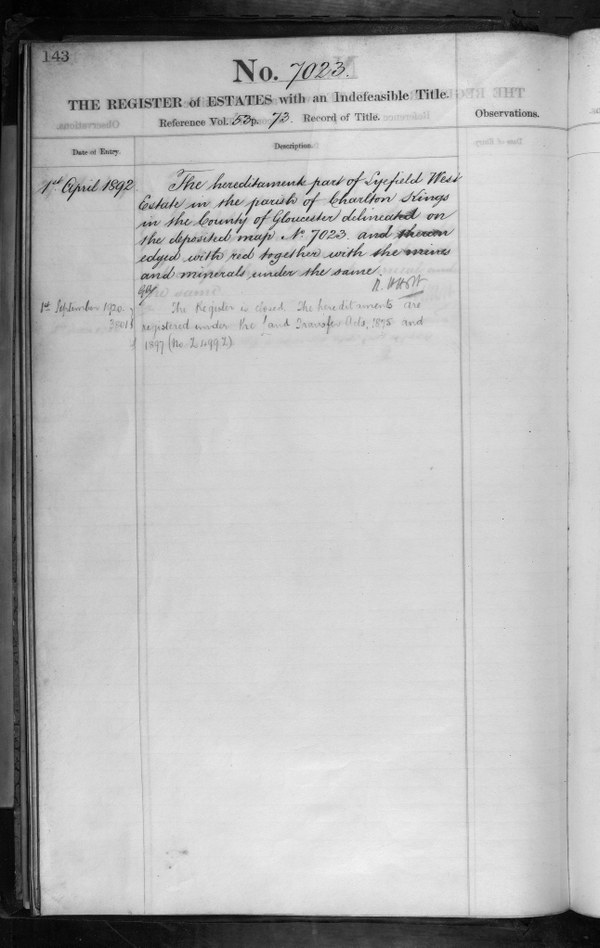 143
No. 7023.
THE REGISTER of ESTATES with an Indefeasible Title.
Reference Vol. 53 p. 73. Record of Title.
Observations.
Date of Entry.
Description.
1st April 1892
The hereditaments part of Lyefield West
Estate in the parish of Charlton Kings
in the County of Gloucester delineated on
the deposited map No. 7023 and thereon
edged with red together with the mines
and minerals under the same
1st September 1920.
The Register is closed. The hereditaments are
registered under the Land Transfer Acts, 1875 and
1897 (No.